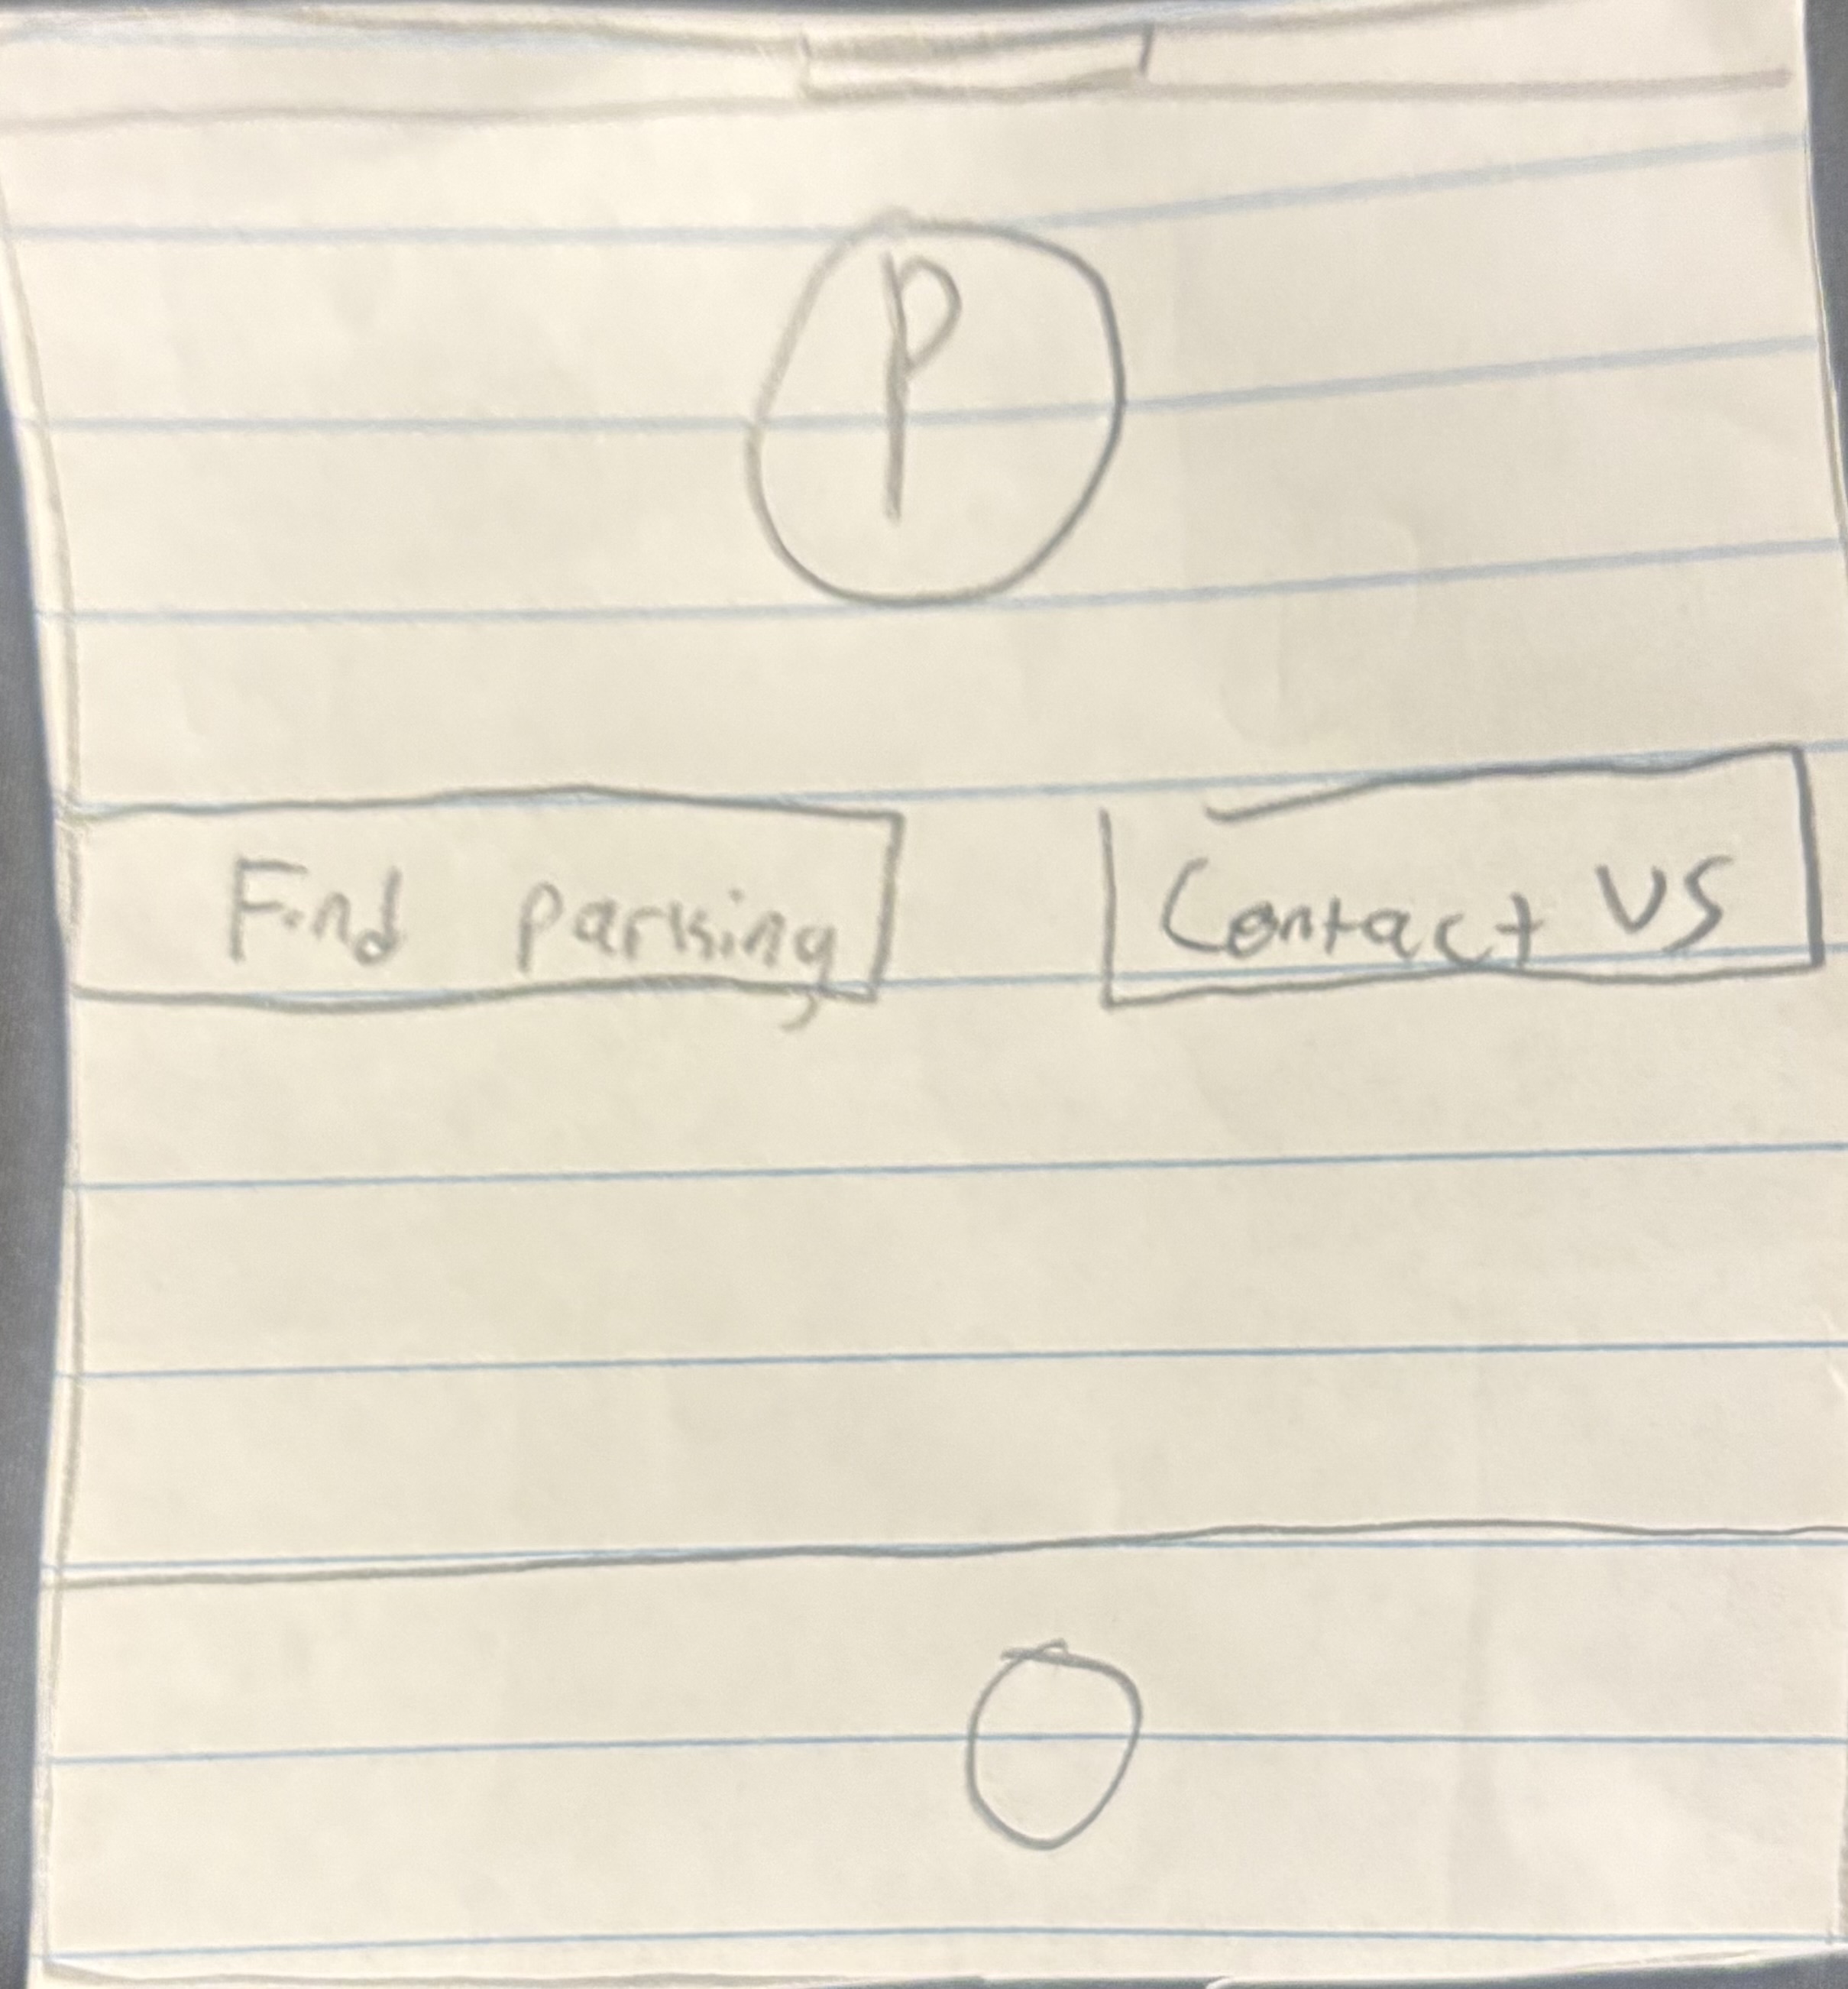 P
Find parking
Contact US